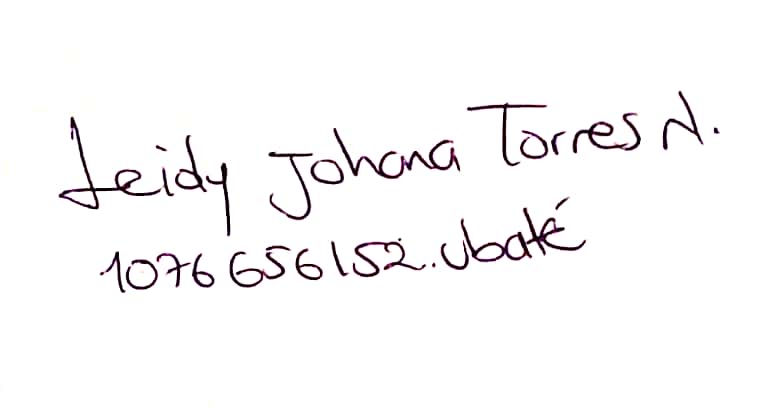 Leidy Johana Torres N.
1076656152.Ubaté